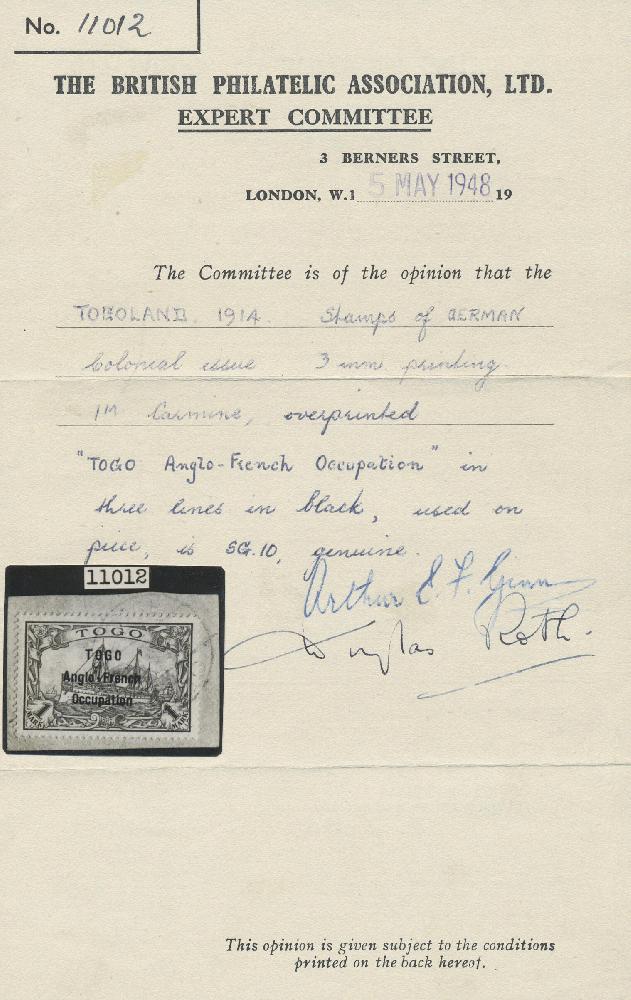 No. 11012
THE BRITISH PHILATELIC ASSOCIATION, LTD.
EXPERT COMMITTEE
3 BERNERS STREET,
LONDON, W.1 5 MAY 1948 19
The Committee is of the opinion that the
TOGOLAND. 1914. Stamps of GERMAN
Colonial issue 3 mm printing.
1M Carmine, overprinted
"TOGO Anglo-French Occupation" in
three lines in black, used on
piece, is SG.10, genuine.
Arthur E. F. Ginn
Douglas Roth.
11012
TOGO
TOGO
Anglo-French
Occupation
1 MARK 1 MARK
This opinion is given subject to the conditions
printed on the back hereof.